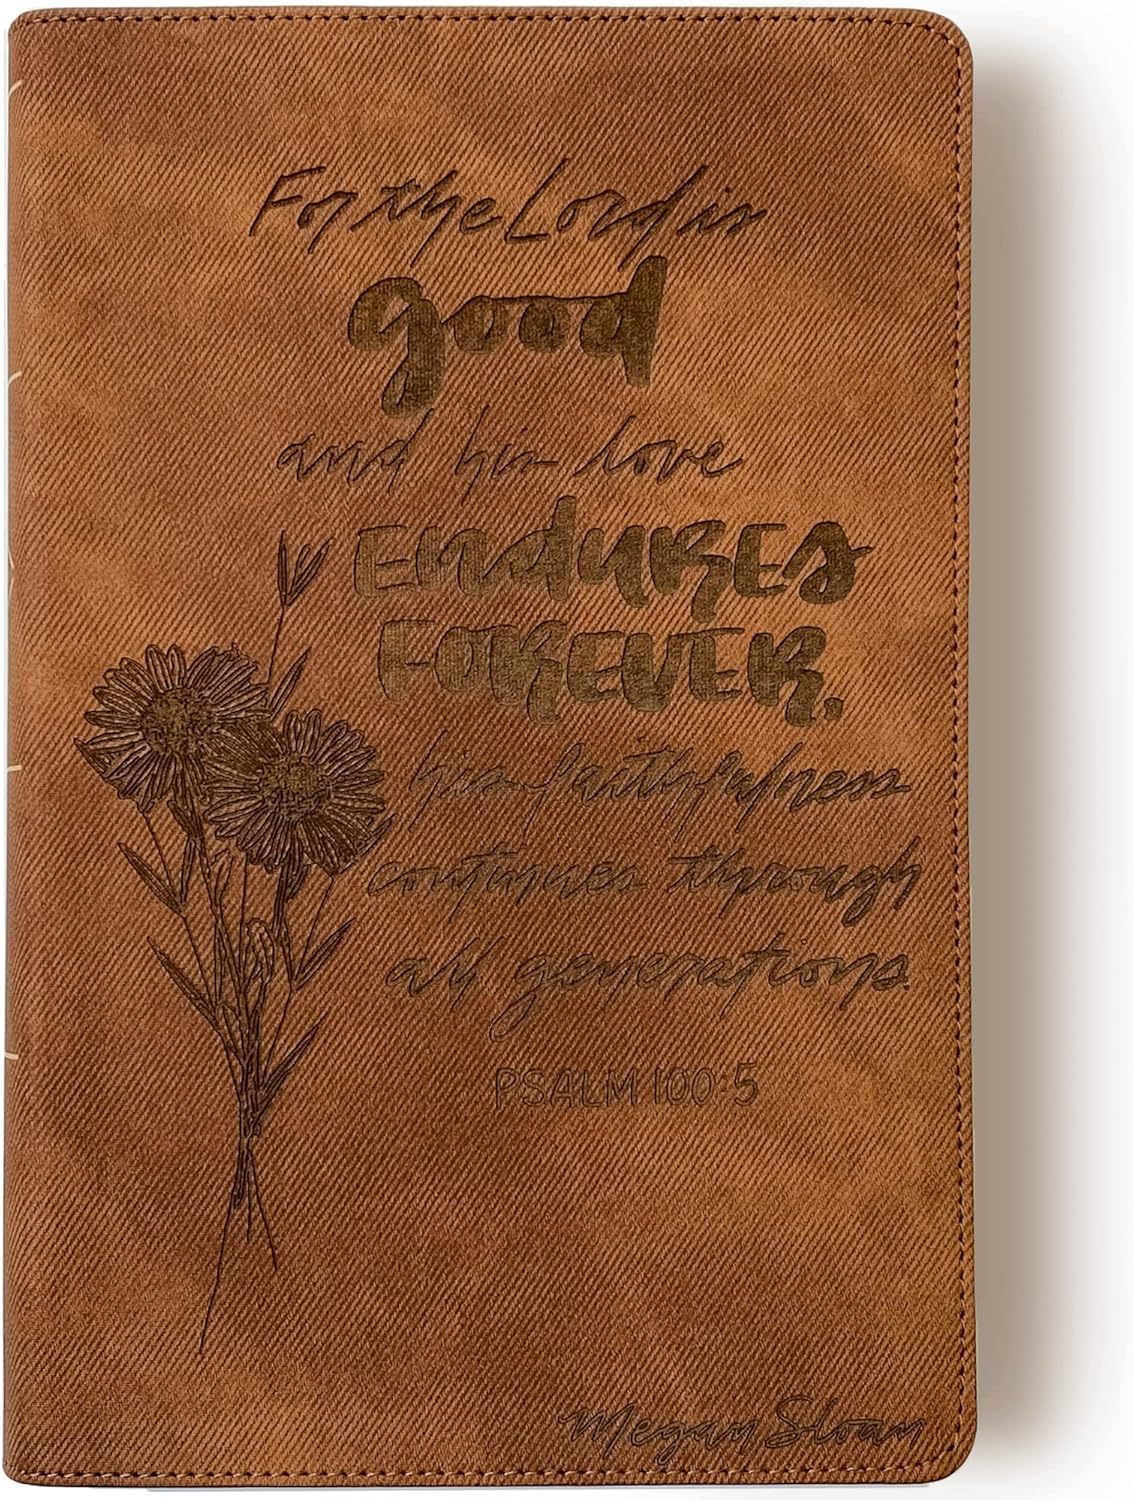 For the Lord is
good
and his love
ENdURES
FOREVER.
his faithfulness
continues through
all generations.
PSALM 100:5
Megan Sloan